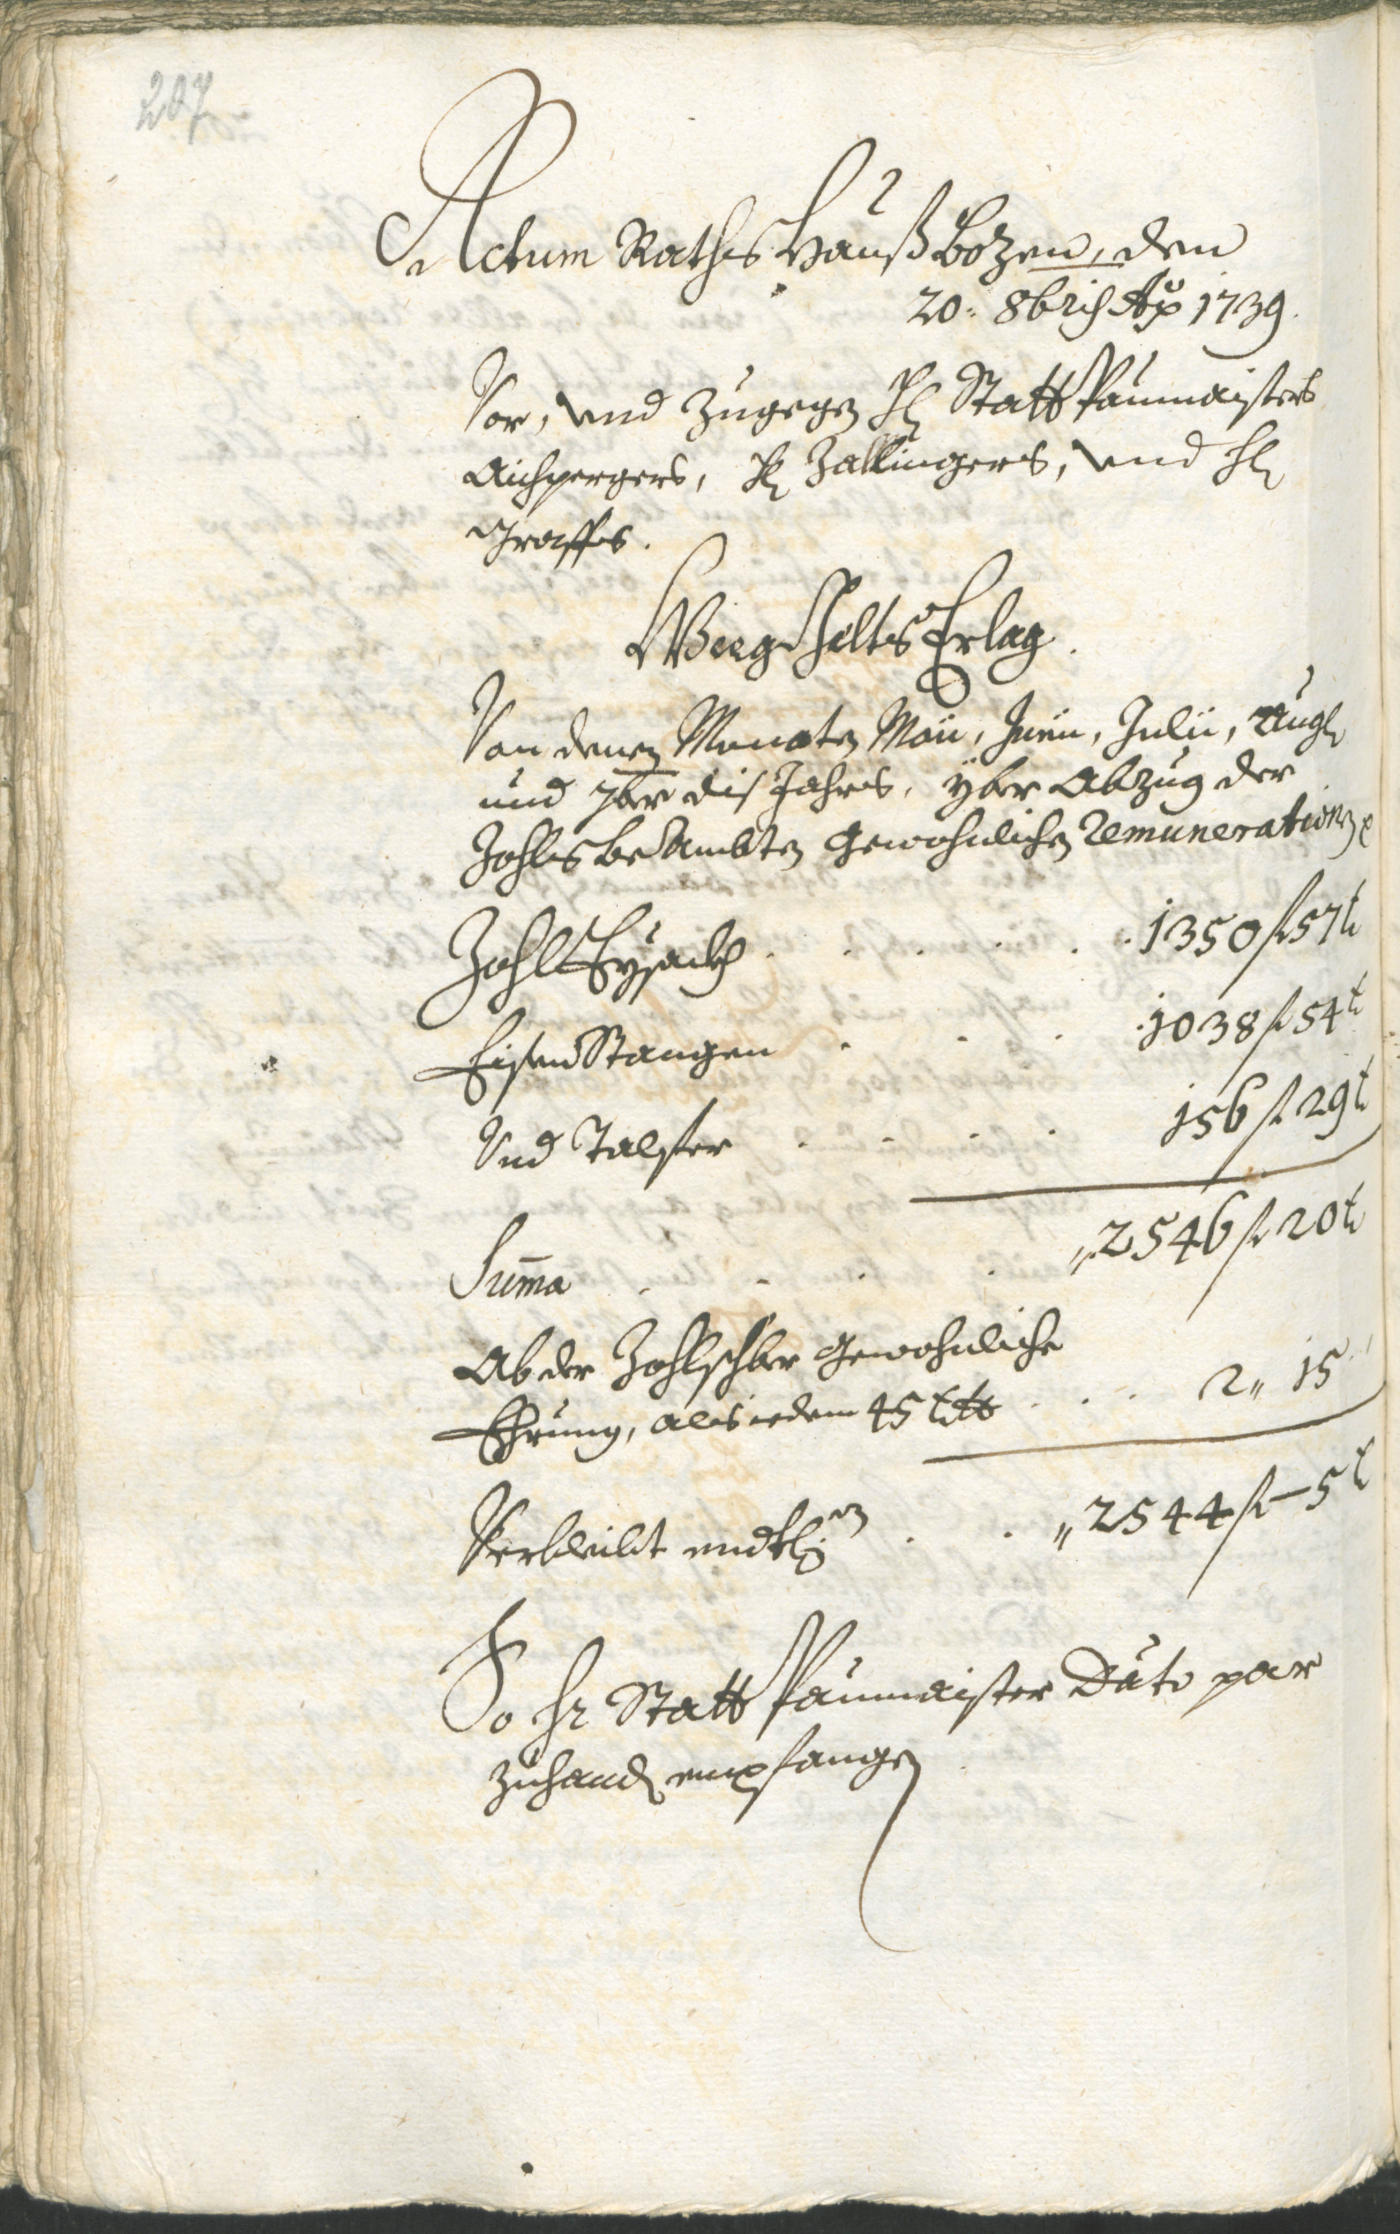 207
Actum Raths Hauß Bozen, den
20. 8bris Ao 1739.
Vor, und zugegen H. Statt Paumaisters
Aichpergers, H. Zallingers, und H.
Graffs.
Weeg Gelts Erlag.
Von denen Monaten Maii, Junii, Julii, Aug.
und 7ber dis Jahrs, yber Abzug der
Zohlsbeambten gewohnlichen Remunerationen
Zohl Eysackh . . . . . 1350 f 57 k
Eisen Stangen . . . 1038 f 54 k
Und Talfer . . . . 156 f 29 k
Summa . . . . „2546 f 20 k
Ab der Zohlschber gewohnliche
Ehrung, als jedem 45 k . . . 2 „ 15
Verbleibt endtlichen . . „2544 f — 5 k
So Hr Statt Paumaister Dato par
zuhanden empfangen